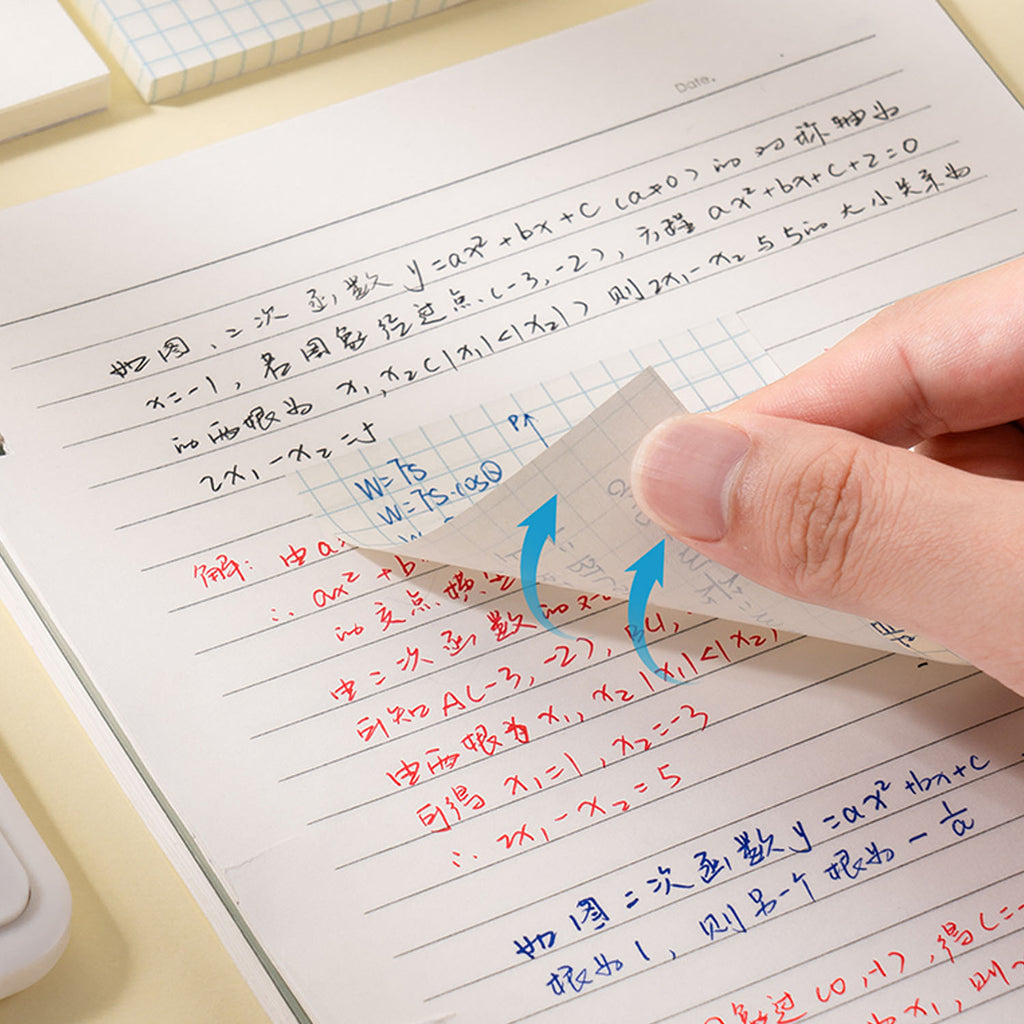 Date.
如图,二次函数 y=ax²+bx+c (a≠0) 的对称轴为
x=-1,若图象经过点(-3,-2),方程 ax²+bx+c+2=0
的两根为 x₁,x₂(|x₁|<|x₂|) 则2x₁-x₂与5的大小关系为
2x₁-x₂=5
P↑
W=7s
W=7s·cosθ
解:由a
∴ ax²+b
的交点横坐
由二次函数的x=
可知A(-3,-2),B(1,
由两根为x₁,x₂|x₁|<|x₂|,
可得 x₁=1,x₂=-3
∴ 2x₁-x₂=5
如图二次函数y=ax²+bx+c
根为1,则另一个根为-1/a
过(0,-1),得c=-
x₁,则